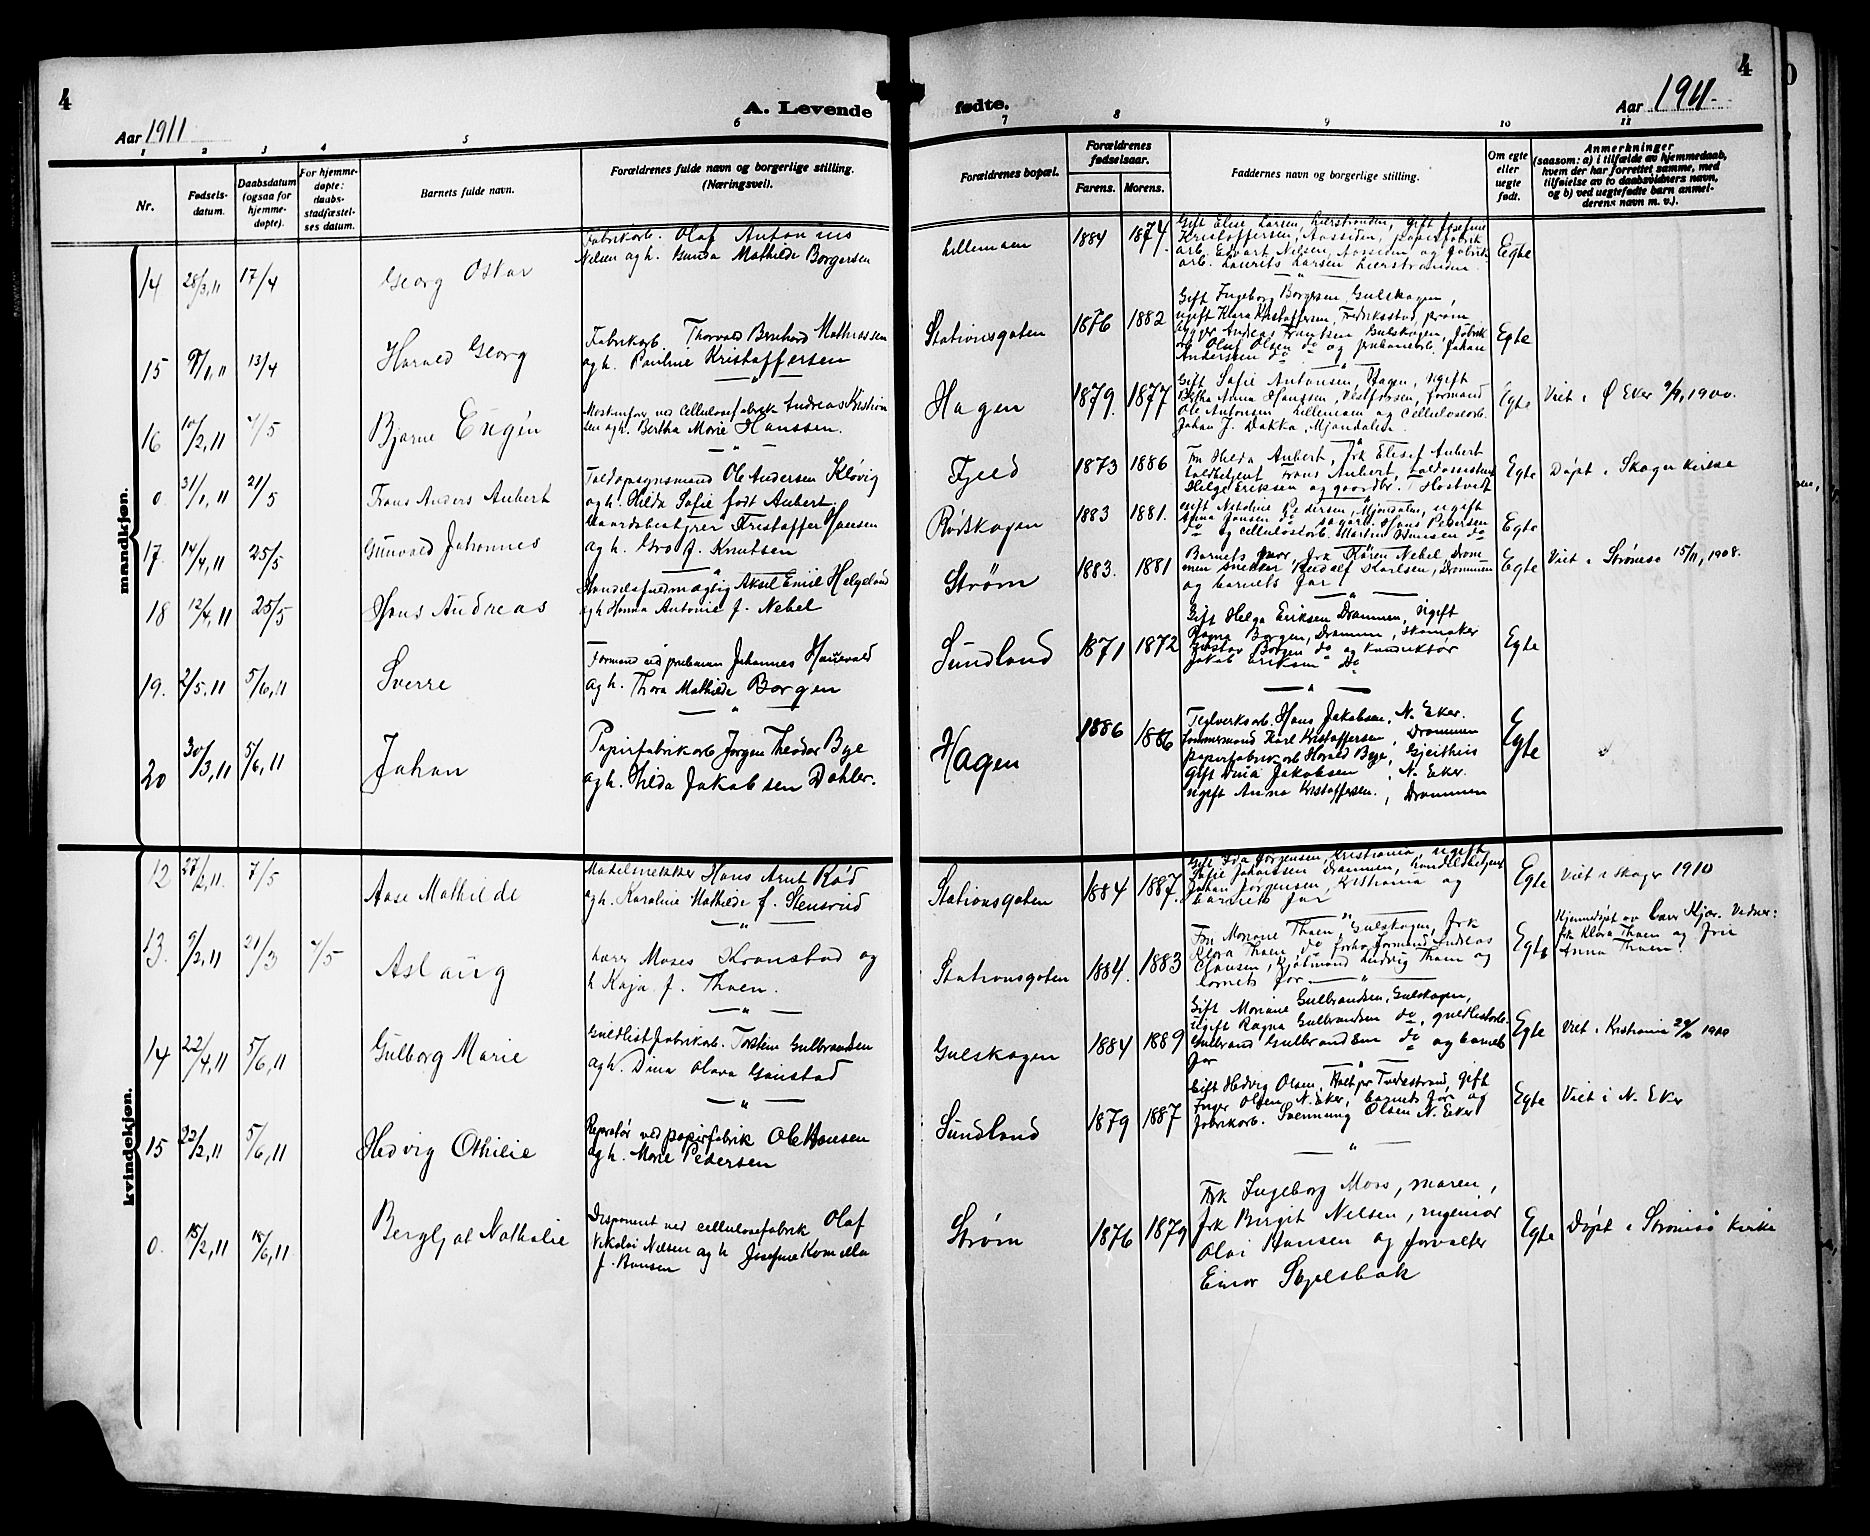 4
A. Levende
fødte.
4
Aar 1911
Aar 1911.
1 2 3 4 5 6 7 8 9 10 11
Nr.
Fødsels-
datum.
Daabsdatum
(ogsaa for
hjemme-
døpte).
For hjemme-
døpte:
daabs-
stadfæstel-
ses datum.
Barnets fulde navn.
Forældrenes fulde navn og borgerlige stilling.
(Næringsvei).
Forældrenes bopæl.
Forældrenes
fødselsaar.
Farens. Morens.
Faddernes navn og borgerlige stilling.
Om egte
eller
uegte
født.
Anmerkninger
(saasom: a) i tilfælde av hjemmedaab,
hvem der har forrettet samme, med
tilføielse av to daabsvidners navn,
og b) ved uegtefødte barn anmel-
derens navn m. v.).
mandkjøn.
14 28/3,11 17/4 Georg Oskar
Fabrikarb. Olaf Antonius
Nelsen og h. Gunda Mathilde Borgersen
Lillemoen 1884 1874.
Gift Elise Larsen, Lierstranden, gift Josefine
Kristoffersen, Aassiden, papirfabrik
arb. Edvart Nilsen, Aassiden og fabrik
arb. Laurits Larsen Lierstranden.
Egte
15 9/1,11 13/4 Harald Georg
Fabrikarb. Thorvald Bernhard Mathiassen
og h. Pauline Kristoffersen
Stationsgaten 1876 1882
Gift Ingeborg Borgesen, Gulskogen,
ugift Klara Kristoffersen, Fredriksstad, pram
Andreas Frantsen Gulskogen, fabrik
arb. Oluf Olsen do og Johan
Andersen do
Egte
16 10/2,11 7/5 Bjarne Eugén
ved Cellulosefabrik Andreas Kristian
sen og h. Bertha Marie Hanssen.
Hagen 1879. 1877
Gift Sofie Antonsen, Hagen, ugift
Anna Hanssen, Vestfossen, formand
Ole Antonsen Lillemoen og Cellulosearb.
Johan J. Dakka, Mjøndalen.
Egte Viet i Ø. Eker 9/9, 1900.
0 31/1,11 21/5 Frans Anders Aubert
Toldopsynsmand Ole Andersen Kløvig
og h. Hilda Sofie født Aubert.
Fjeld 1873 1886
Fru Hilda Aubert, frk Elisef Aubert
toldbetjent Frans Aubert, toldassistent
Helge Eriksen og gaardbr. T. Hostvedt
Egte Døpt i Skoger kirke
17. 14/4,11 25/5 Gunvald Johannes
Gaardsbestyrer Kristoffer Hansen
og h. Gro f. Knutsen
Rødskogen 1883 1881.
Gift Nataline Pedersen, Mjøndalen, ugift
Anna Jonsen do sagarb. Hans Pedersen
do og cellulosearb. Martin Hansen do
Egte
18 12/4,11 25/5 Hans Andreas
Handelsfuldmægtig Aksel Emil Helgeland
og h. Hanna Antonie f. Nebel
Strøm 1883. 1881
Barnets mor, frk Karen Nebel, Dram-
men snekker Rudolf Karlsen, Drammen
og barnets far
Egte Viet i Strømsø 15/11, 1908.
19. 2/5,11 5/6,11 Sverre
Formand ved Johannes Hauevald
og h. Thora Mathilde Borgen
Sundland 1871 1872
Gift Helga Eriksen Drammen, ugift
Ragna Borgen, Drammen, skomaker
Gustav Borgen do og konduktør
Jakob Eriksen do
Egte
20 30/3,11 5/6,11 Johan
Papirfabrikarb Jørgen Theodor Bye
og h. Hilda Jakobsen Dahler.
Hagen 1886 1886
Teglverksarb. Hans Jakobsen, N. Eker.
Karl Kristoffersen, Drammen
papirfabrikarb Harald Bye, Gjeithus
Gift Dina Jakobsen, N. Eker.
ugift Anna Kristoffersen., Drammen
Egte
kvindekjøn.
12 27/2,11. 7/5 Aase Mathilde
Modelsnekker Hans Arnt Rød
og h. Karoline Mathilde f. Stensrud
Stationsgaten 1884 1887.
Gift Ida Jørgensen, Kristiania, ugift
Sofie Johansen Drammen, Handelsbetjent
Johan Jørgensen, Kristiania og
barnets far
Egte Viet i Skoger 1910
13. 9/2,11 21/3 7/5 Aslaug
Lærer Moses Kronstad og
h Kaja f. Thoen.
Stationsgaten 1884. 1883
Fru Mariane Thoen, Gulskogen, frk
Klara Thoen, do, formand Andreas
Clausen, Ludvig Thoen og
barnets far
Egte
Hjemmedøpt av Lærer Kjær. Vidner:
frk Klara Thoen og fru
Anna Thoen.
14 22/4,11 5/6,11 Gulborg Marie
Guldlistfabrikarb. Torstein Gulbrandsen
og h. Dina Olava Gaustad
Gulskogen 1884 1889
Gift Mariane Gulbrandsen, Gulskogen,
ugift Ragna Gulbrandsen do, guldlistarb.
Gulbrand Gulbrandsen do og barnets
far
Egte Viet i Kristiania 1909
15 22/2,11 5/6,11 Hedvig Othilie
Reparatør ved papirfabrik Ole Hansen
og h. Marie Pedersen
Sundland 1879 1887
Gift Hedvig Olsen, Holt pr Tvedestrand, gift
Inger Olsen N. Eker, barnets far og
fabrikarb. Svennung Olsen N. Eker
Egte Viet i N. Eker
0. 15/2,11 18/6,11 Bergljot Nathalie
Disponent ved cellulosefabrik Olaf
Nikolai Nielsen og h Josefine Kamilla
f. Hansen
Strøm 1876 1879
Frk Ingeborg Moss, Maren,
frk Birgit Nelsen, ingeniør
Olai Hansen og forvalter
Einar Skjelsbæk
Egte Døpt i Strømsø kirke